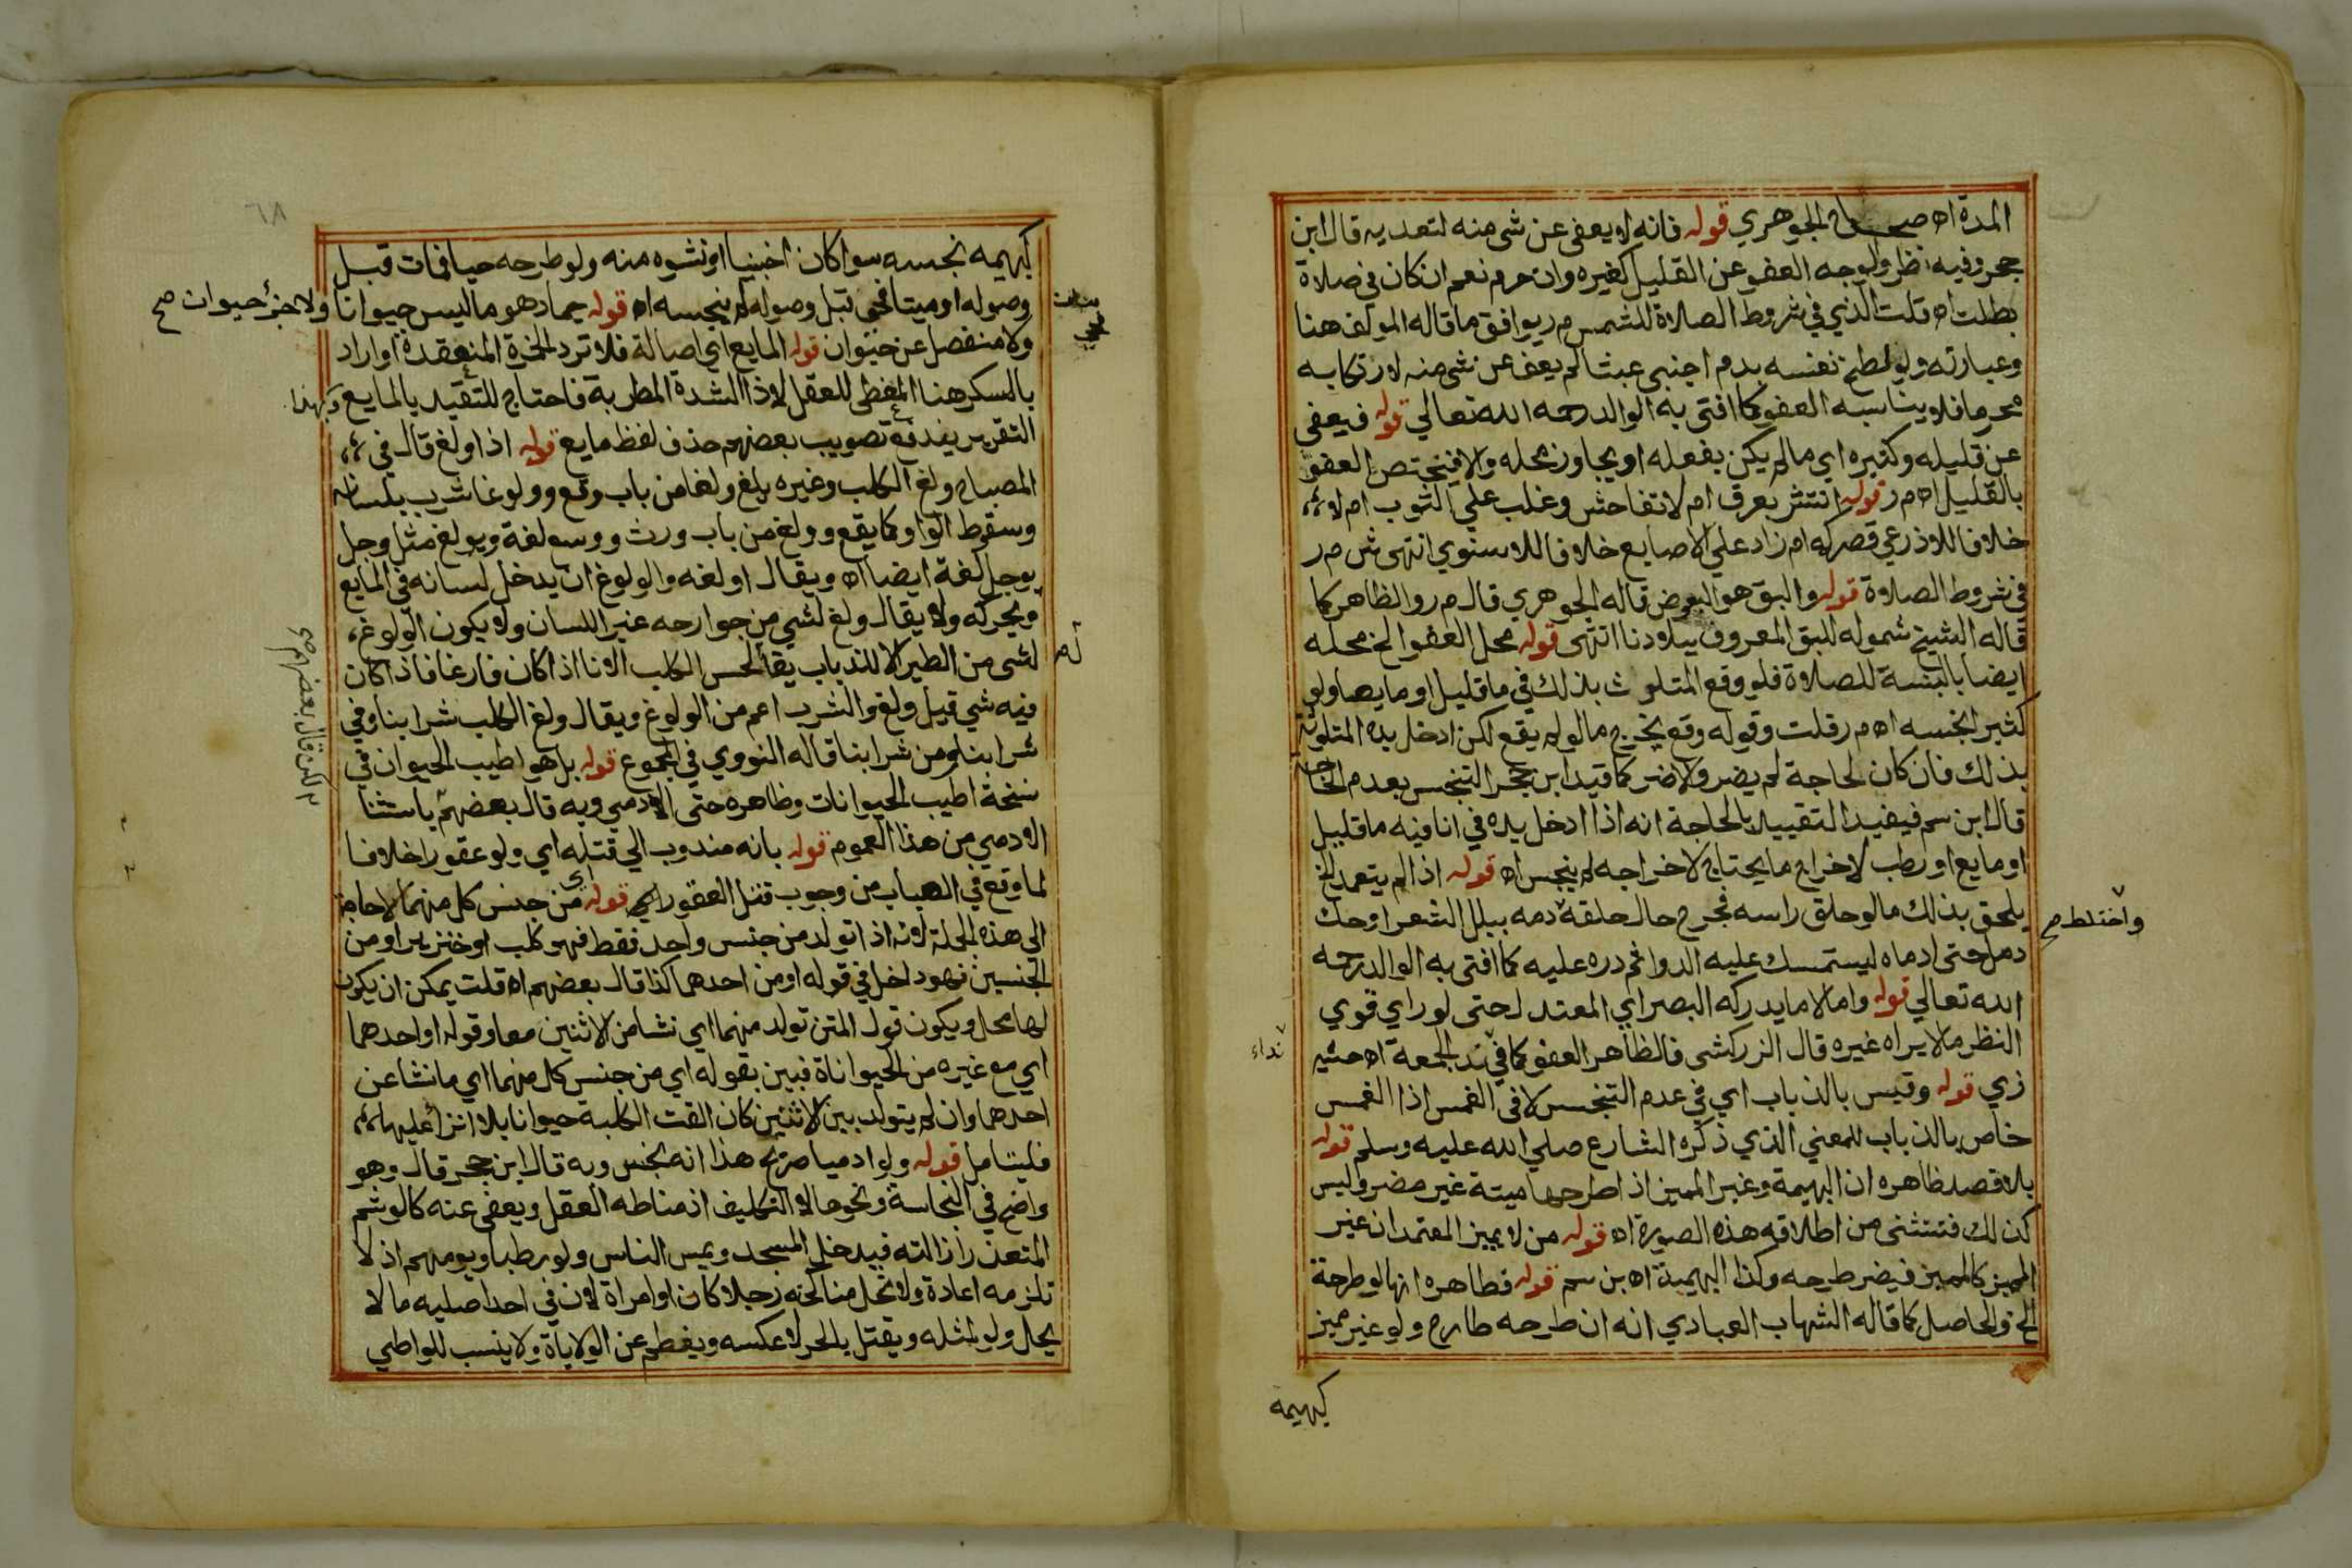 المدة اه صحاح الجوهري قوله فانه لا يعفى عن شي منه لتعديه قال ابن
حجر وفيه نظر والوجه العفو عن القليل كغيره وان حرم نعم ان كان في صلاة
بطلت اه قلت الذي في شروط الصلاة للشمس م ر يوافق ما قاله المولف هنا
وعبارته ولو لطخ نفسه بدم اجنبي عبثا لم يعف عن شي منه لارتكابه
محرما فلا يناسبه العفو كما افتى به الوالد رحمه الله تعالي قوله فيعفي
عن قليله وكثيره اي ما لم يكن بفعله او يجاوز محله والا فيختص العفو
بالقليل اه م ر قوله انتشر بعرق ام لا تفاحش وغلب علي الثوب ام لا
خلافا للاذرعي قصر كمه ام زاد علي الاصابع خلافا للاسنوي انتهى ش م ر
في شروط الصلاة قوله والبق هو البعوض قاله الجوهري قال م ر والظاهر كما
قاله الشيخ شموله للبق المعروف ببلادنا انتهى قوله محل العفو الخ محله
ايضا بالنسبة للصلاة فلو وقع المتلوث بذلك في ما قليل او مايع او لو
كثيرا نجسه اه م ر قلت وقوله وقع يخرج ما لو لم يقع لكن ادخل يده المتلوثة
بذلك فان كان لحاجة لم يضر والا ضر كما قيد ابن حجر التنجس بعدم الحاجة
قال ابن سم فيفيد التقييد بالحاجة انه اذا ادخل يده في انا فيه ما قليل
او مايع او رطب لاخراج ما يحتاج لاخراجه لم ينجس اه قوله اذا لم يتعمد الخ
يلحق بذلك ما لو حلق راسه فجرح حال حلقه دمه ببلل الشعر او حك
واختلط صح
دمل حتى ادماه ليستمسك عليه الدوا ثم دره عليه كما افتى به الوالد رحمه
الله تعالي قوله واما لا ما يدركه البصر اي المعتدل حتى لو راي قوي
النظر ما لا يراه غيره قال الزركشي فالظاهر العفو كما في ند الجمعة اه حشيه
نداء
زي قوله وقيس بالذباب اي في عدم التنجس لا في الغمس اذا الغمس
خاص بالذباب للمعني الذي ذكره الشارع صلي الله عليه وسلم قوله
بلا قصد ظاهره ان البهيمة وغير المميز اذا طرحها ميتة غير مضر وليس
كذلك فتستثنى من اطلاقه هذه الصورة اه قوله من لا يميز المعتمد ان غير
المميز كالمميز فيضر طرحه وكذا البهيمة اه بن سم قوله فظاهره انها لو طرحة
الخ والحاصل كما قاله الشهاب العبادي انه ان طرحه طارح ولو غير مميز
كبهيمة
٦٨
كبهيمه نجسه سوا كان اجنبيا او نشوه منه ولو طرحه حيا فمات قبل
وصوله او ميتا فحي قبل وصوله لم ينجسه اه قوله جماد هو ما ليس حيوانا ولا جزء حيوان صح
ولا منفصل عن حيوان قوله المايع اي اصالة فلا ترد الخمرة المنعقدة او اراد
بالسكر هنا المغطى للعقل لا ذا الشدة المطربة فاحتاج للتقيد بالمايع وبهذا
التقرير يندفع تصويب بعضهم حذف لفظ مايع قوله اذا ولغ قال في
المصباح ولغ الكلب وغيره يلغ ولغا من باب وقع وولوغا شرب بلسانه
وسقوط الواو كما يقع وولغ من باب ورث ووسع لغة ويولغ مثل وجل
يوجل لغة ايضا اه ويقال اولغه والولوغ ان يدخل لسانه في المايع
ويحركه ولا يقال ولغ لشي من جوارحه غير اللسان ولا يكون الولوغ
لشي من الطير الا للذباب يقا لحس الكلب الانا اذا كان فارغا فاذا كان
فيه شي قيل ولغ والشرب اعم من الولوغ ويقال ولغ الكلب شرابنا وفي
شرابنا ومن شرابنا قاله النووي في المجموع قوله بل هو اطيب الحيوان في
نسخة اطيب الحيوانات وظاهره حتى الادمي وبه قال بعضهم باستثنا
لكن قال بعضهم صح
الادمي من هذا العموم قوله بانه مندوب الي قتله اي ولو عقورا خلافا
لما وقع في العباب من وجوب قتل العقور اي قوله اي من جنس كل منهما لا حاجة
الى هذه الجملة لانه اذا تولد من جنس واحد فقط فهو كلب او خنزير او من
الجنسين فهو داخل في قوله او من احدهما كذا قال بعضهم اه قلت يمكن ان يكون
لها محل ويكون قول المتن تولد منهما اي نشا من الاثنين معا وقوله او احدهما
اي مع غيره من الحيواناة فبين بقوله اي من جنس كل منهما اي ما نشا عن
احدهما وان لم يتولد بين الاثنين كان القت الكلبة حيوانا بلا انزا عليها
فليتامل قوله ولو ادميا صرح هذا انه نجس وبه قال ابن حجر قال وهو
واضح في النجاسة ونحوها لا التكليف اذ مناطه العقل ويعفى عنه كالوشم
المتعذر ازالته فيدخل المسجد ويمس الناس ولو رطبا ويومهم اذ لا
تلزمه اعادة ولا تحل مناكحته رجلا كان او امراة لان في احد اصليه ما لا
يحل ولو لمثله ويقتل بالحر لا عكسه ويفطم عن الولاياة ولا ينسب للواطي